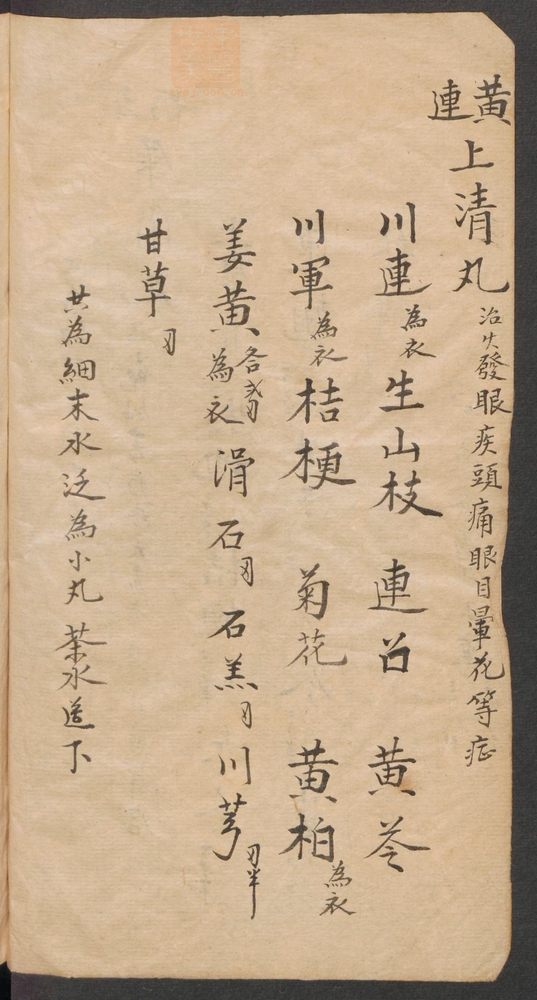 黃連上清丸 治火發眼疾頭痛眼目暈花等症
川連為衣 生山枝 連召 黃芩
川軍為衣 桔梗 菊花 黃柏為衣
姜黃為衣 各 滑石刃 石羔刃 川芎刃半
甘草刃
共為細末水泛為小丸 茶水送下